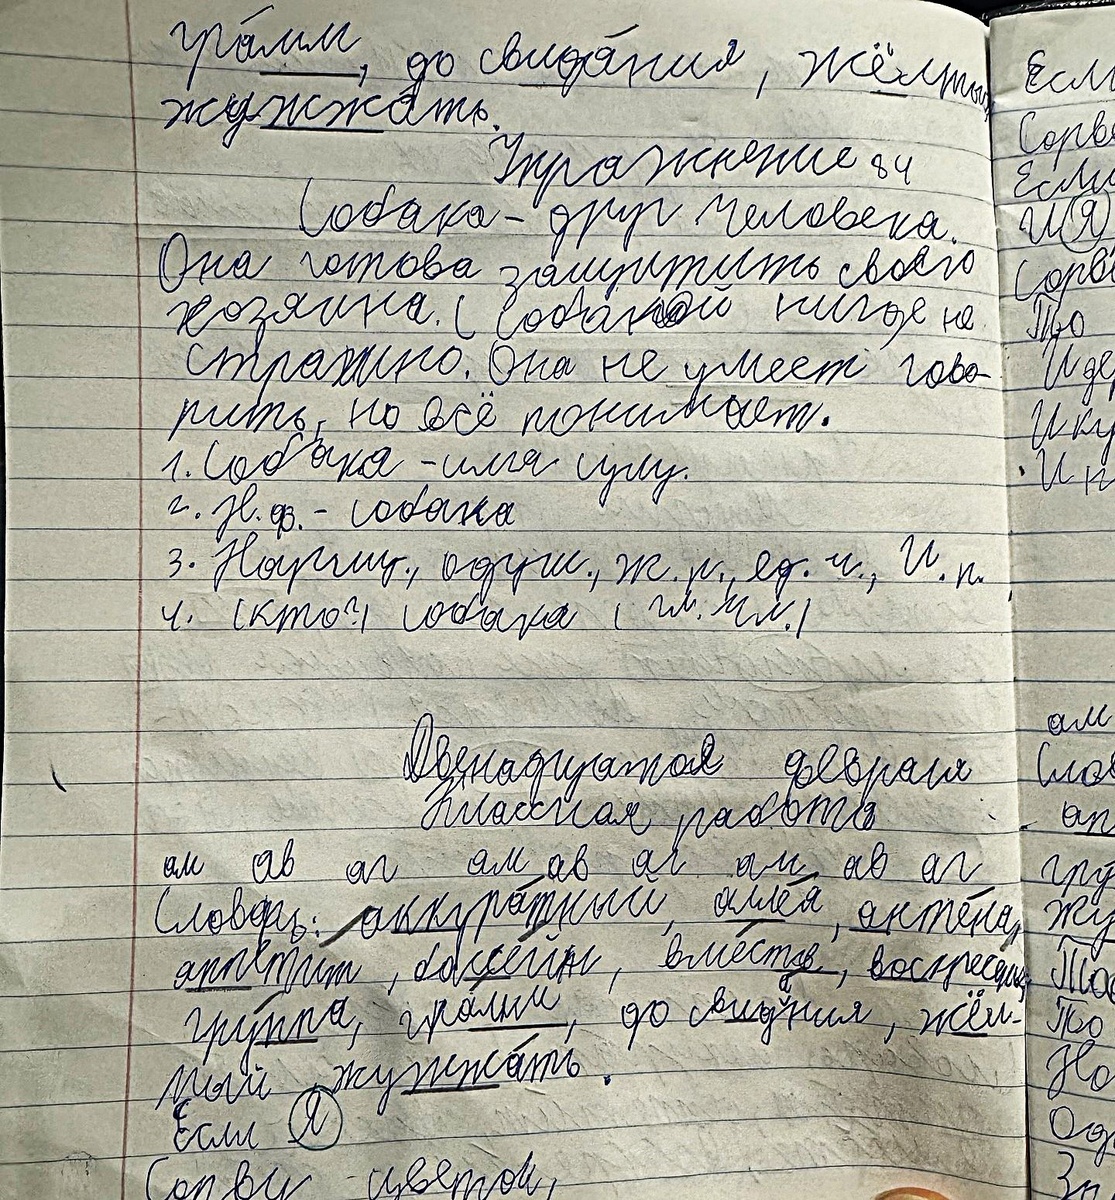 грамм, до свидания, жёлтый,
жужжать.
Упражнение 84
Собака - друг человека.
Она готова защитить своего
хозяина. С собакой нигде не
страшно. Она не умеет гово-
рить, но всё понимает.
1. Собака - имя сущ.
2. Н.ф. - собака
3. Нариц., одуш., ж.р., ед.ч., И.п.
4. (кто?) собака (гл. чл.)
Двенадцатое февраля
Классная работа
ам ав аг ам ав аг ам ав аг
Словарь: аккуратный, аллея, антена,
аппетит, бассейн, вместе, воскресенье,
группа, грамм, до свидания, жёл-
тый, жужжать.
Если Я
Сорву цветок,
Если
Сорв
Если
И Я
Сорв
То
И де
И ку
И н
ам
Слов
ап
гру
жу
То
Но
Од
Зн